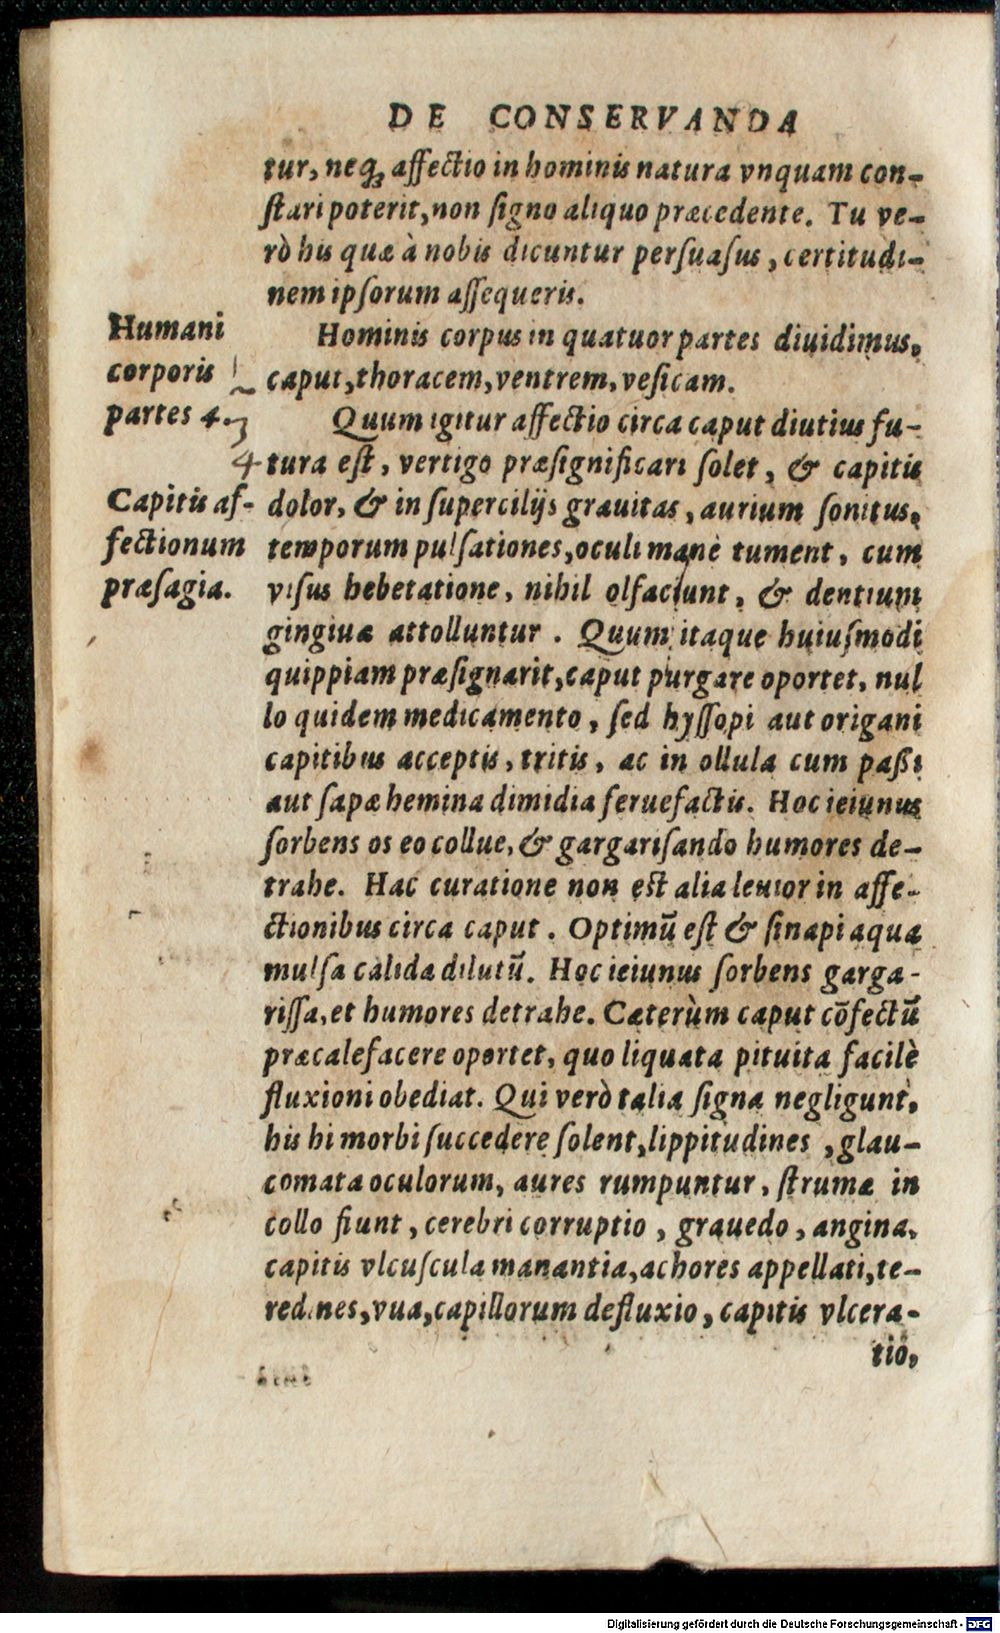 DE CONSERVANDA
tur, neq; affectio in hominis natura vnquam con-
ſtari poterit, non ſigno aliquo præcedente. Tu ve-
rò his quæ à nobis dicuntur perſuaſus, certitudi-
nem ipſorum aſſequeris.
Humani
corporis
partes 4.
Hominis corpus in quatuor partes diuidimus,
caput, thoracem, ventrem, veſicam.
Quum igitur affectio circa caput diutius fu-
4
tura eſt, vertigo præſignificari ſolet, & capitis
Capitis af-
fectionum
præſagia.
dolor, & in ſupercilijs grauitas, aurium ſonitus,
temporum pulſationes, oculi manè tument, cum
viſus hebetatione, nihil olfaciunt, & dentium
gingiuæ attolluntur. Quum itaque huiuſmodi
quippiam præſignarit, caput purgare oportet, nul
lo quidem medicamento, ſed hyſſopi aut origani
capitibus acceptis, tritis, ac in ollula cum paßi
aut ſapæ hemina dimidia feruefactis. Hoc ieiunus
ſorbens os eo collue, & gargariſando humores de-
trahe. Hac curatione non eſt alia leuior in affe-
ctionibus circa caput. Optimū eſt & ſinapi aqua
mulſa calida dilutū. Hoc ieiunus ſorbens garga-
riſſa, et humores detrahe. Cæterùm caput cōfectū
præcalefacere oportet, quo liquata pituita facilè
fluxioni obediat. Qui verò talia ſigna negligunt,
his hi morbi ſuccedere ſolent, lippitudines, glau-
comata oculorum, aures rumpuntur, ſtrumæ in
collo fiunt, cerebri corruptio, grauedo, angina,
capitis vlcuſcula manantia, achores appellati, te-
redines, vua, capillorum defluxio, capitis vlcera-
tio,
Digitalisierung gefördert durch die Deutsche Forschungsgemeinschaft - DFG